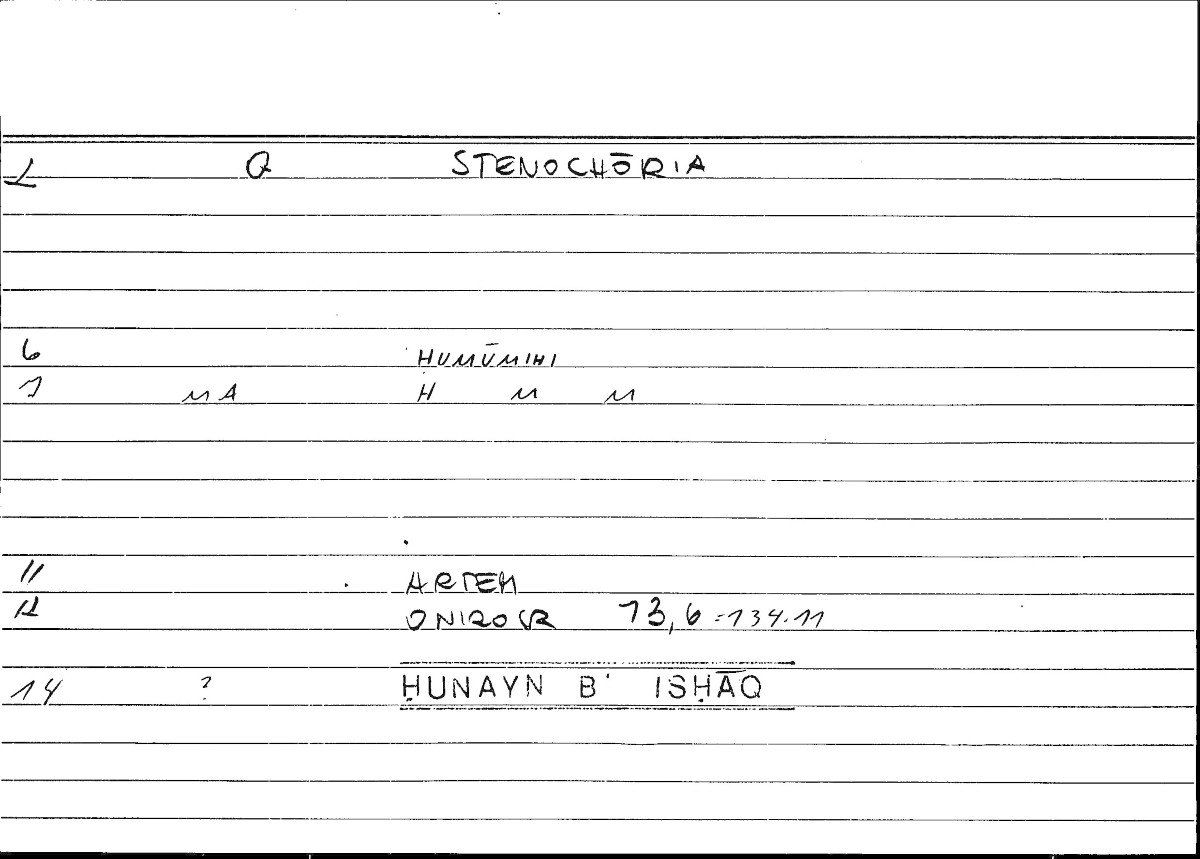 1 Q STENOCHŌRIA
6 HUMŪMIHI
7 MA H M M
11 ARTEM
12 ONIROCR 73,6 = 134.11
14 ? ḤUNAYN B' ISḤĀQ